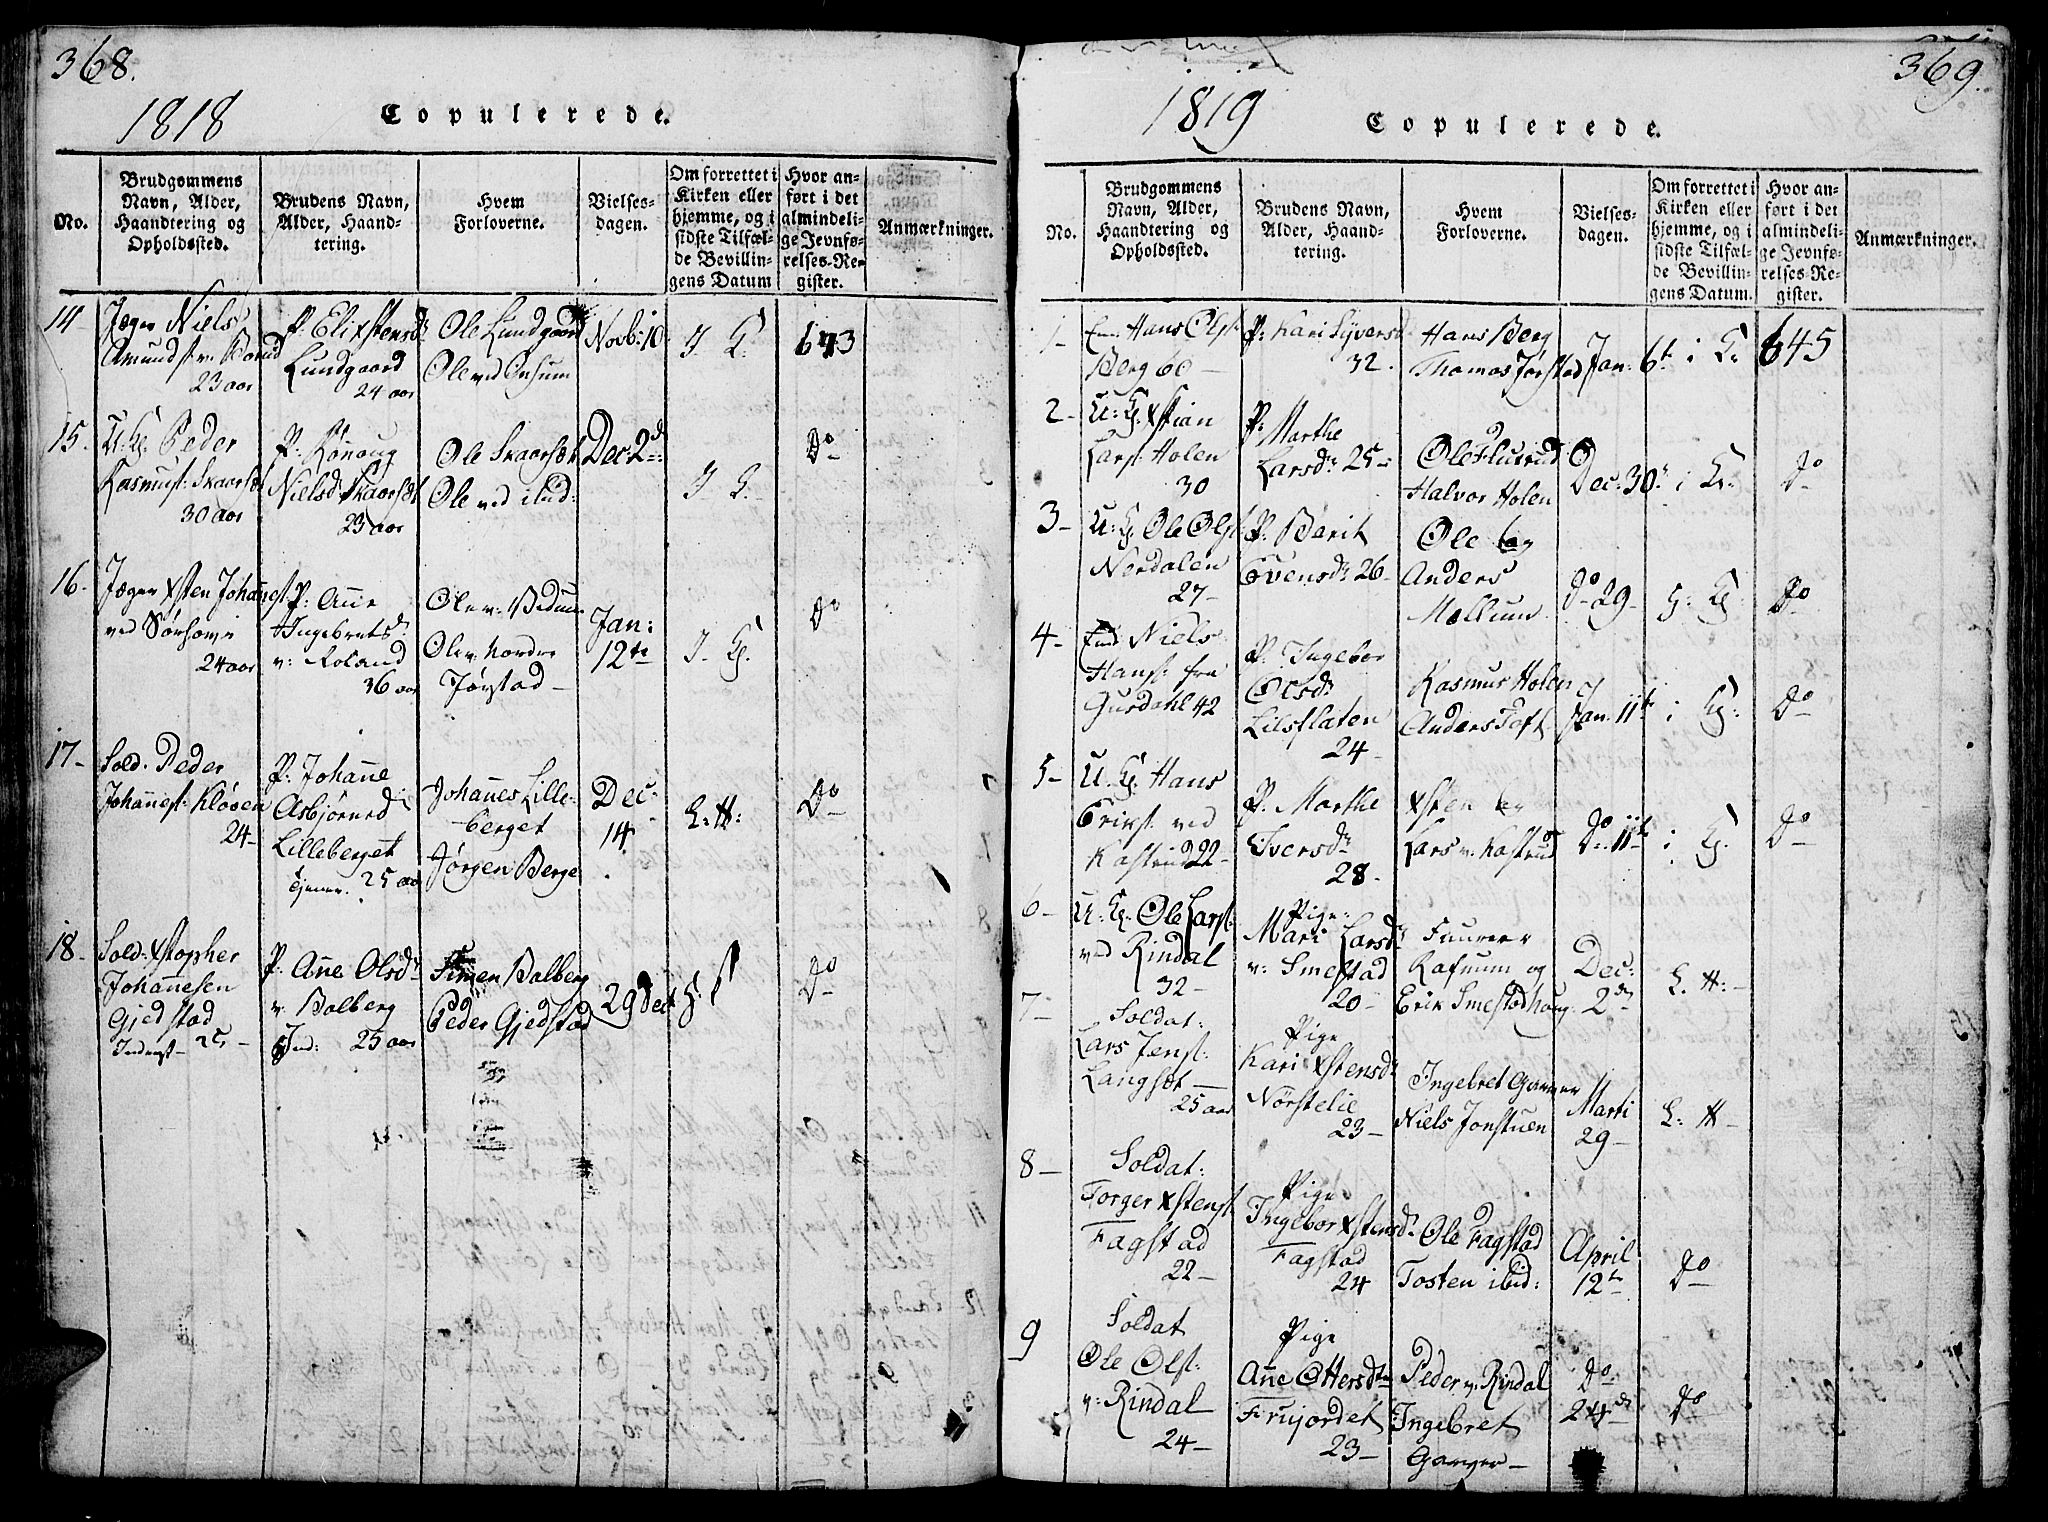 368.
1818
Copulerede.
No.
Brudgommens Navn, Alder, Haandtering og Opholdssted.
Brudens Navn, Alder, Haandtering.
Hvem Forloverne.
Vielsesdagen.
Om forrettet i Kirken eller hjemme, og i sidste Tilfælde Bevillingens Datum
Hvor anført i det almindelige Jevnførelses-Register.
Anmærkninger.
14
Jæger Niels
Amunds. v. Borud
23 aar
P. Eli Xstensd.
Lundgaard
24 aar
Ole Lundgaard
Ole ved Onsum
Novb: 10
I K.
643
15.
U: K. Peder
Rasmus: Skaarsæt
30 aar
P. Rönaug
Nielsd. Skaarsæt
23 aar
Ole Skaarsæt
Ole ved ibid:
Dec: 2d
I K.
Do
16.
Jæger Xsten Johañs:
ved Sørhove
24 aar
P: Añe
Ingebretsd.
v: Roland
36 aar
Ole v:
Ole v. nordre
Jørstad
Jan:
12te
I K.
Do
17
Sold. Peder
Johañes: Kløven
24
P. Johañe
Asbjørnsd
Lilleberget
25 aar
Johañes Lille-
berget
Jørgen Berge
Dec:
14.
L: H:
Do
18
Sold: Xstopher
Johañesen
Gjedstad
Inderst 25
P. Añe Olsd.
v. Balberg
Ind: 25 aar
Simen Balberg
Peder Gjedstad
29 Dec
Do
369.
1819
Copulerede.
No.
Brudgommens Navn, Alder, Haandtering og Opholdssted.
Brudens Navn, Alder, Haandtering.
Hvem Forloverne.
Vielsesdagen.
Om forrettet i Kirken eller hjemme, og i sidste Tilfælde Bevillingens Datum.
Hvor anført i det almindelige Jevnførelses-Register.
Anmærkninger.
1
Em. Hans Ols:
Berg 60
P. Kari Syversd.
32.
Hans Berg
Thomas Jørstad
Jan: 6t
i K:
645
2
U: K. Xstian
Lars: Holen
30
P.
Marthe
Larsd. 25
Ole Flutrud
Halvor Holen
Dec: 30
i K:
Do
3
U: K. Ole Ols:
Nordalen
27
P. Berit
Evensd. 26
Ole og
Anders
Mollum
Do 29
Do
4
Em. Niels
Hans: fra
Gusdahl 42
P. Ingebor
Olsd.
Lilsflaten
24
Rasmus Holen
Anders Toft
Jan. 11te
i K:
Do
5
U. K. Hans
Eriks: ved
Kastrud 22
P. Marthe
Iversd.
28.
Xsten og
Lars v. Kastrud
Do 11te
i K.
Do
6
U. K. Ole Lars:
ved Rindal
32
Pige:
Mari Larsd.
v: Smestad
20
Fuureer
Rafnum og
Erik Smestadhaug
Dec:
2d
L. H:
7
Soldat:
Lars Jens:
Langsæt
25 aar
Pige
Kari Xstensd.
Nörstelie
23
Ingebret Garener
Niels Jonstuen
Marti
29
L: H
8
Soldat:
Torger Xstens:
Fagstad
22
Pige
Ingebor Xstensd.
Fagstad
24
Ole Fagstad
Tosten ibid:
April
12te
Do
9
Soldat
Ole Ols:
v: Rindal
24
Pige
Añe Ottersdtr
Frujordet
23
Peder v. Rindal
Ingebret
Garener
Do
24de
Do